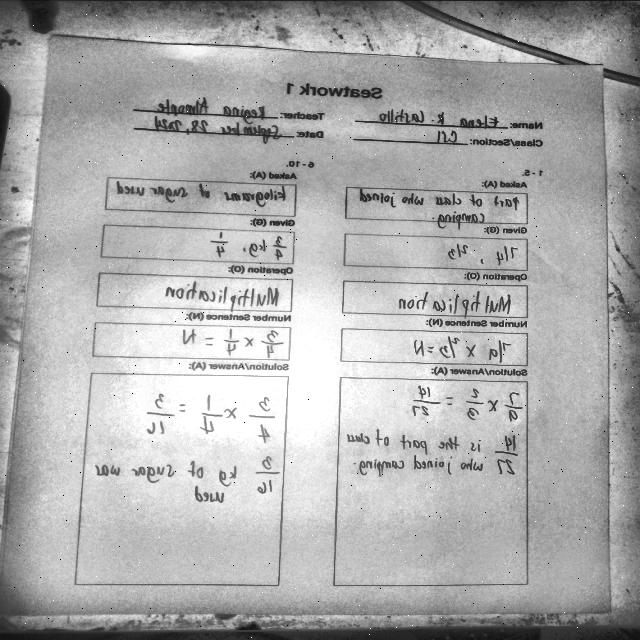 Seatwork 1
Name: Elena R. Castillo
Teacher: Regina
Class/Section: CSII
Date: September 28, 2024
1 - 5.
Asked (A):
part of class who joined
camping.
Given (G):
7/9 , 2/3
Operation (O):
Multiplication
Number Sentence (N):
7/9 x 2/3 = N
Solution/Answer (A):
7/9 x 2/3 = 14/27
14/27 is the part of class
who joined camping.
6 - 10.
Asked (A):
kilograms of sugar used
Given (G):
3/4 kg, 1/4
Operation (O):
Multiplication
Number Sentence (N):
3/4 x 1/4 = N
Solution/Answer (A):
3/4 x 1/4 = 3/16
3/16 kg of sugar was
used